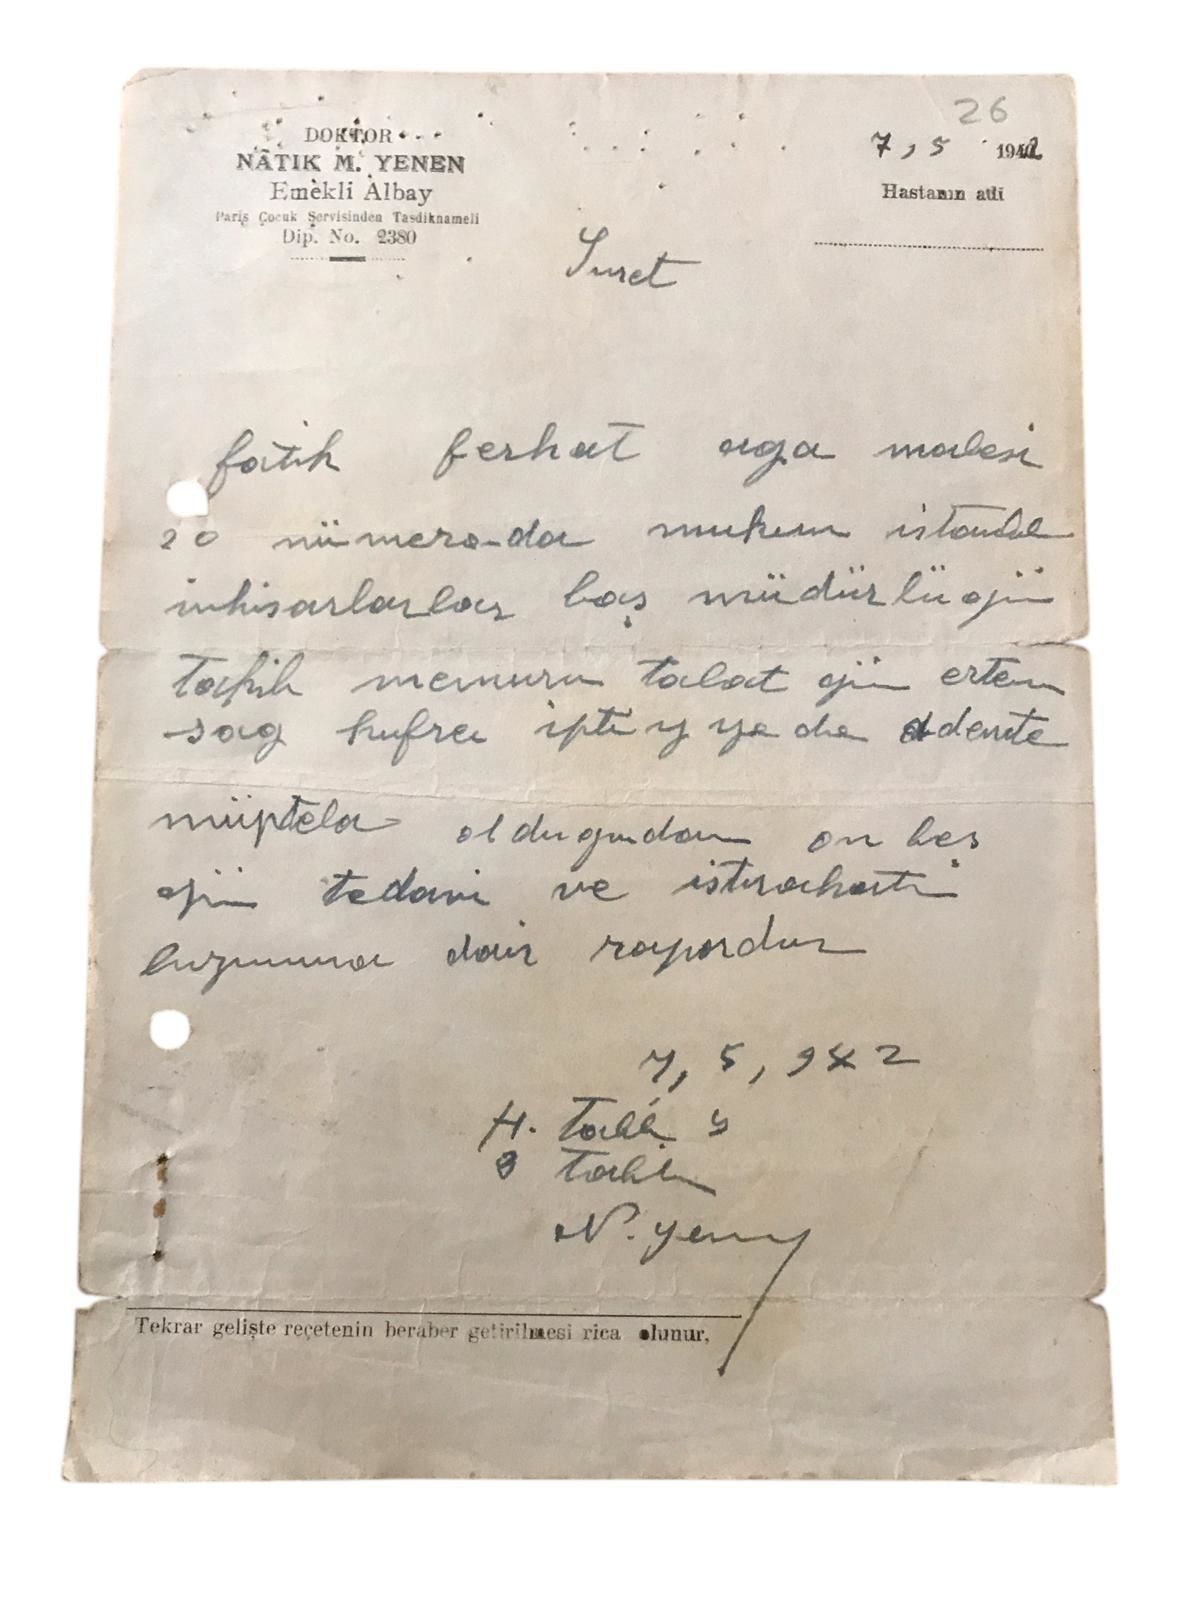 26
DOKTOR
NÂTIK M. YENEN
Emekli Albay
Paris Çocuk Servisinden Tasdiknameli
Dip. No. 2380
7, 5 1942
Hastanın adı
Suret
fatih ferhat aga malesi
20 nümeroda mukim istanbul
inhisarlarlar baş müdürlügü
takib memuru talat gün ertem
sag hufrei dente
müptela oldugundan on beş
gün tedavi ve istirahati
luzumuna dair rapordur
7, 5, 942
H.
N. Yenen
Tekrar gelişte reçetenin beraber getirilmesi rica olunur,